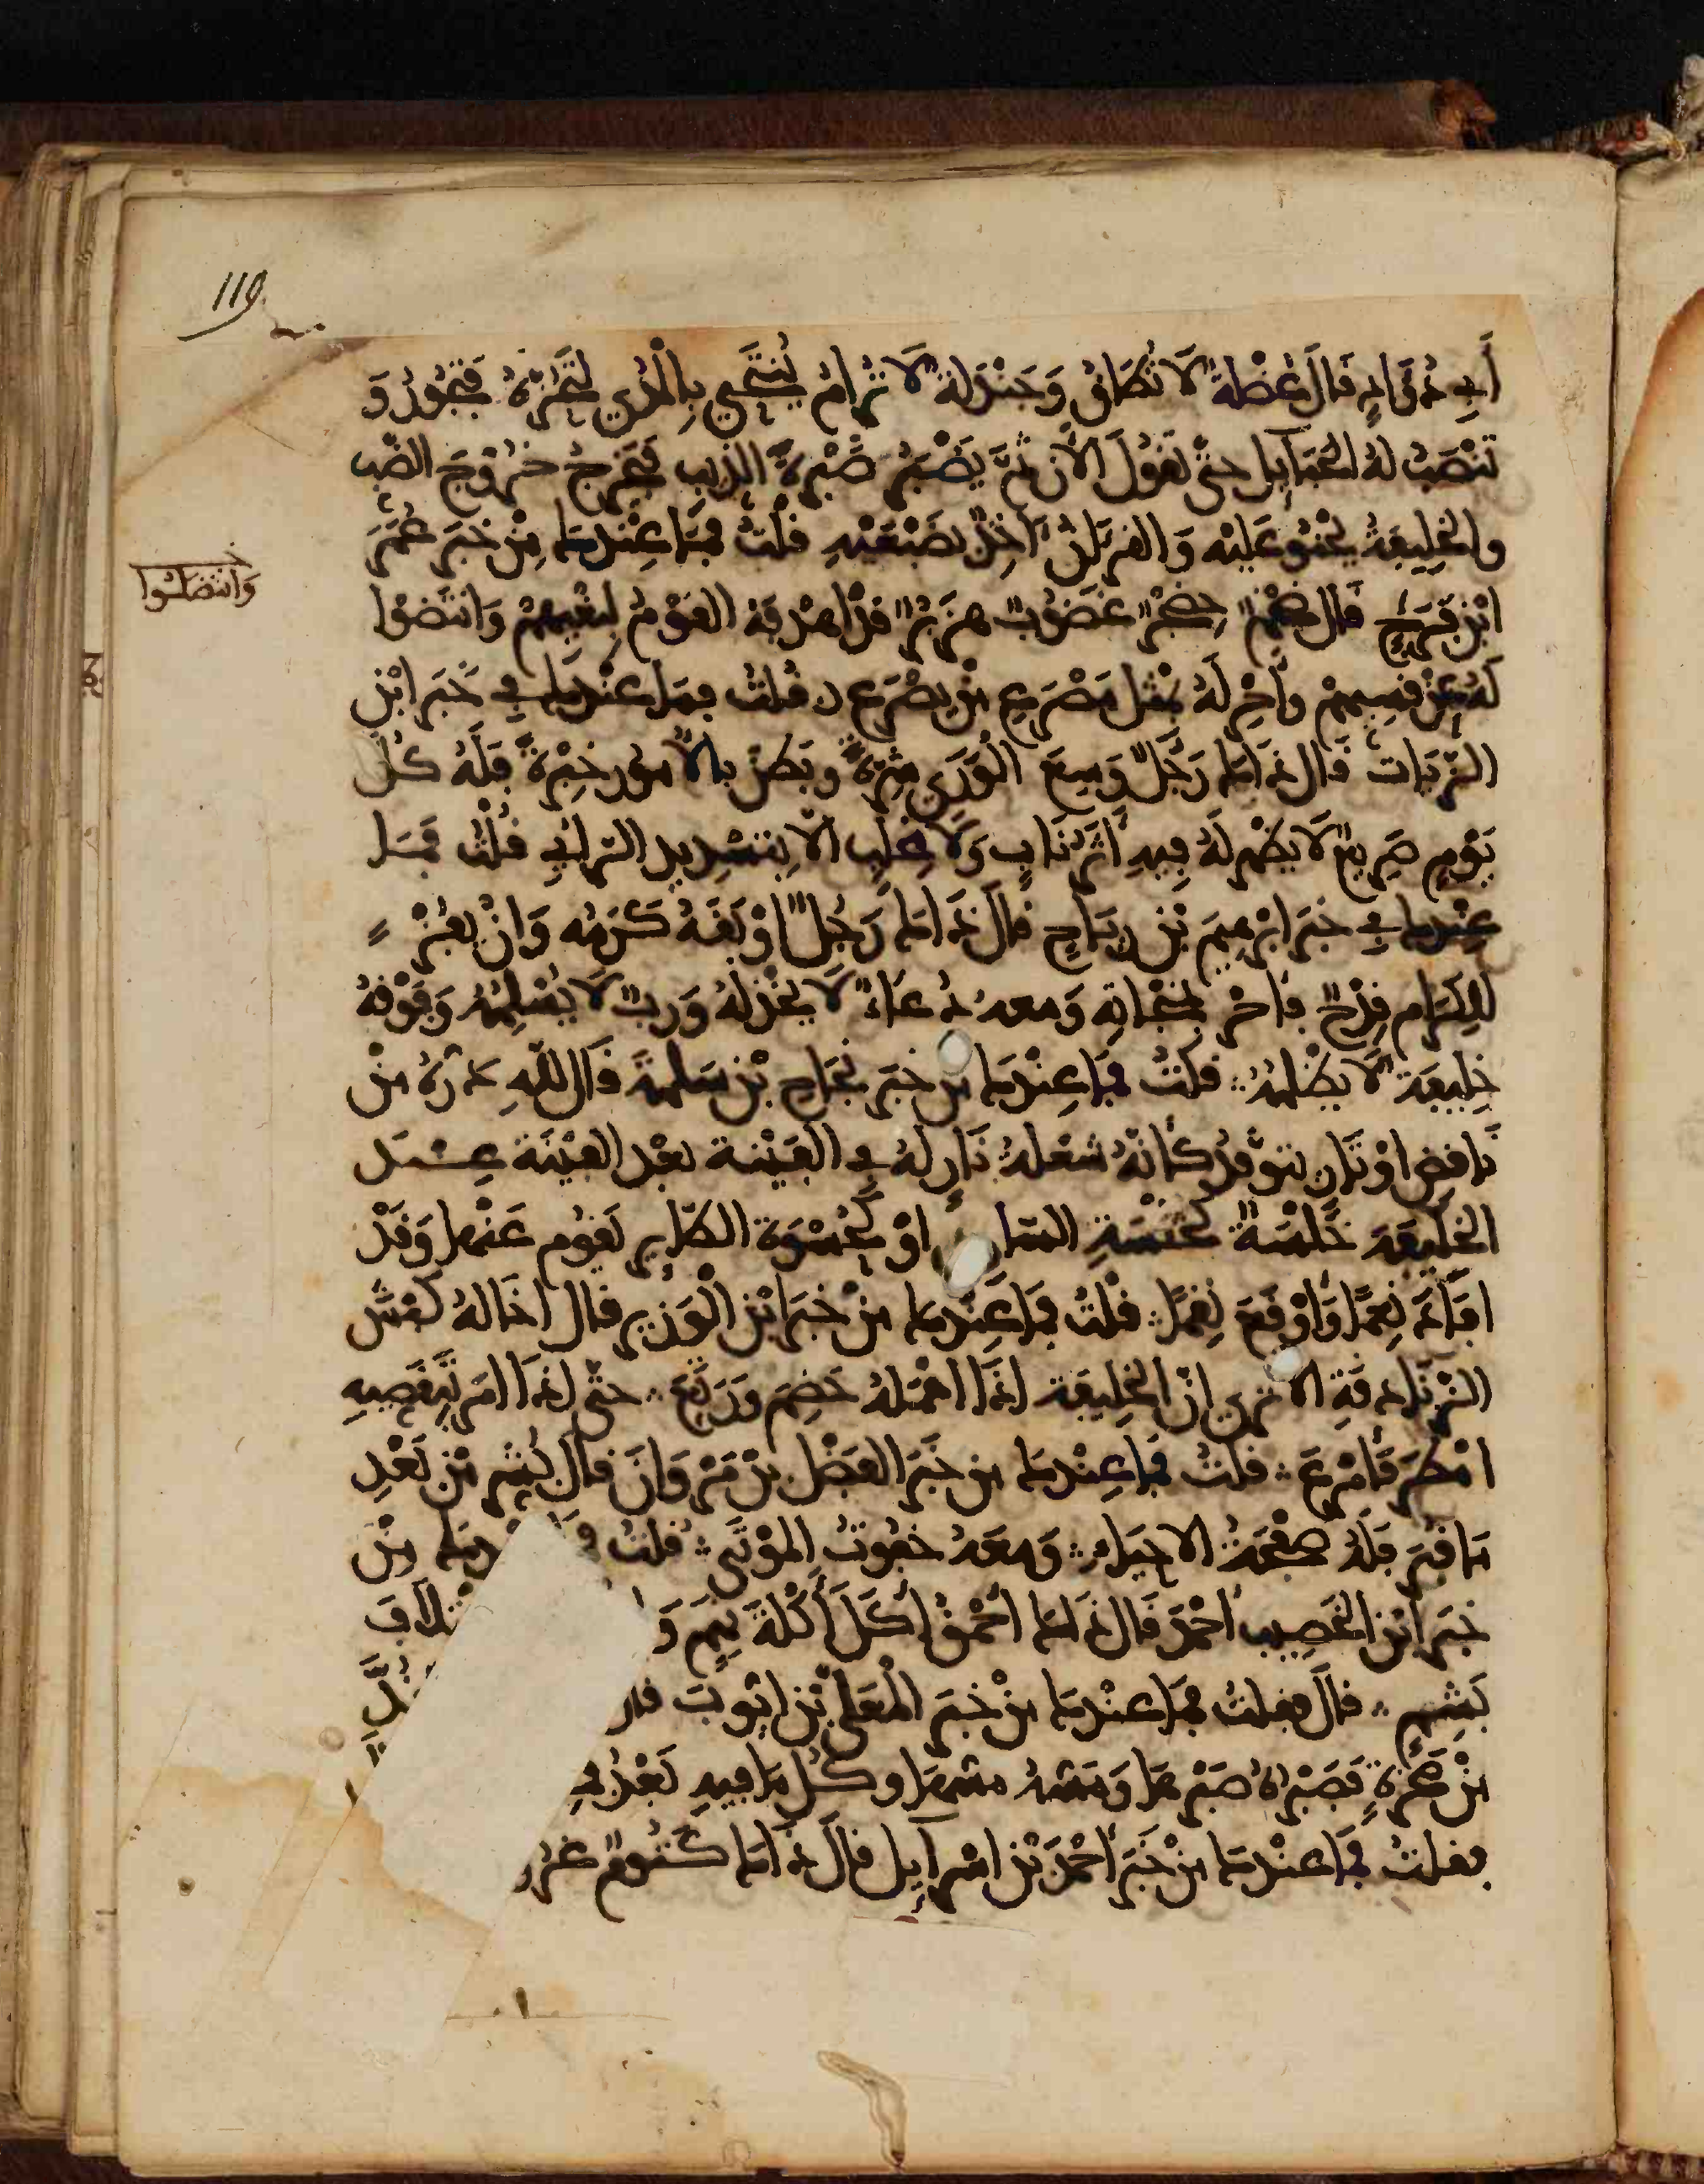 119
أبي دؤاد قال عُضْلَةٌ لا تُطاق وجَنْدَلة لا تُرام ينتحي بالمدى لتحزه فتحور و
تنصب له الحبايل حتى تقول الآن ثم يضبر ضبرة الذيب فيخرج خروج الضب
والخليفة يحنو عليه والقرءان آخذ بضبعيه قلت فما عندك من خبر عمر
ابن فرج قال ضخم حضجر غضوب هزبر قد اهدفه القوم لبغيهم وانتضوا
وانتضلوا
له عن قسيهم وأحر له بمثل مصرع من يصرع قلت فما عندك في خبر ابن
الزيات قال ذاك رجل وسع الورى شره وبطن بالأمور خبره فله كل
يوم صريع لا يظهر له فيه أثر ناب ولا مخلب الا بتسديد الراي قلت فما
عندك في خبر ابرهيم بن رباح قال ذاك رجل اوبقه كرمه وان يفز
للكرام قدح فأحر بنجاته ومعه دعاء لا يخذله ورب لا يسلمه وفوقه
خليفة لا يظلمه قلت فما عندك من خبر نجاح بن سلمة قال لله دره من
ناقض اوتار يتوقد كأنه شعلة نار له في الفينة بعد الفينة عند
الخليفة خلسة كخلسة السا او كحسوة الطاير يقوم عنها وقد
افاد نعما وأوقع نقما قلت فما عندك من خبر ابن الوزير قال اخاله كبش
الزنادقة الا ترى ان الخليفة اذا اهمله خضم ورتع حتى اذا امر بتقصيه
امطر فأمرع قلت فما عندك من خبر الفضل بن مروان قال نشر من بعد
ما قبر فله صفحة الاحياء ومعه خفوت الموتى قلت دك من
خبر ابن الخصيب احمد قال ذاك احمق أكل أكلة نهم و تلاف
بشم قال فقلت فما عندك من خبر المعلى بن ايوب قا
من صخرة فصبره صبرها ومسه مسها وكل ما فيه بعد
فقلت فما عندك من خبر أحمد بن اسرآيل قال ذاك كتوم غدر